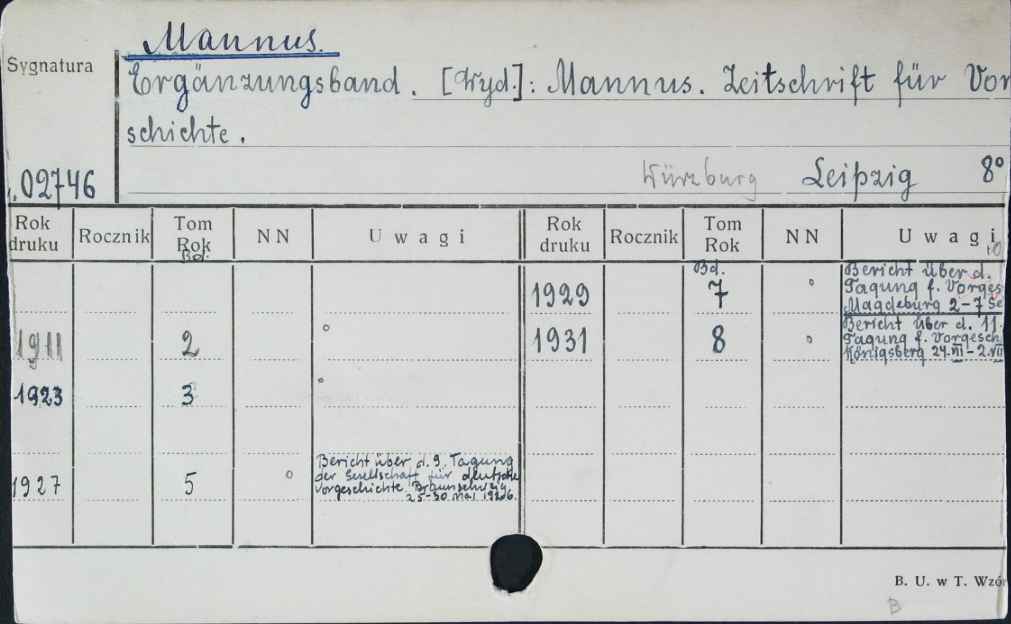 Mannus.
Sygnatura
Ergänzungsband. [Wyd.]: Mannus. Zeitschrift für Vor
schichte.
02746
Würzburg Leipzig 8°
Rok druku Rocznik Tom Rok NN Uwagi Rok druku Rocznik Tom Rok NN Uwagi
Bd. Bd.
1929 7 Bericht über d.
Tagung f. Vorges
Magdeburg 2-7 Se
1911 2
1931 8 Bericht über d. 11.
Tagung f. Vorgesch
Königsberg 24.VIII-2.VII
1923 3
1927 5 Bericht über d. 9. Tagung
der Gesellschaft für deutsche
Vorgeschichte, Braunschweig
25-30 Mai 1926.
B. U. w T. Wzór
B